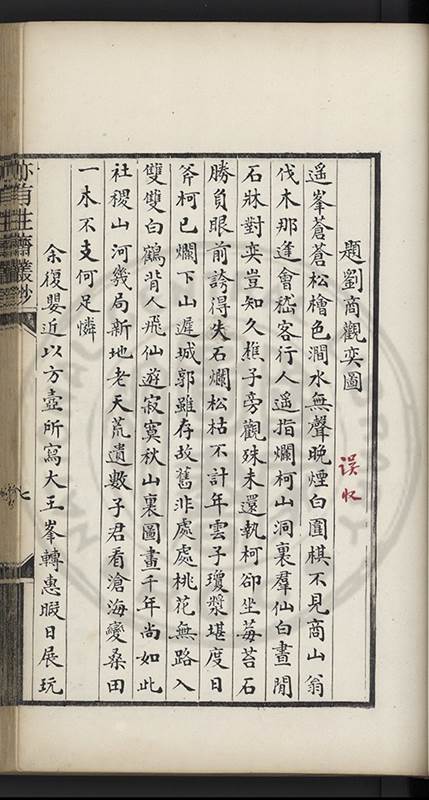 題劉商觀奕圖
遥峯蒼蒼松檜色澗水無聲晚煙白圍棋不見商山翁
伐木那逢會嵇客行人遥指爛柯山洞裏羣仙白晝閒
石牀對奕豈知久樵子旁觀殊未還執柯卻坐莓苔石
勝負眼前誇得失石爛松枯不計年雲子瓊漿堪度日
斧柯已爛下山遲城郭雖存故舊非處處桃花無路入
雙雙白鶴背人飛仙遊寂寞秋山裏圖畫千年尚如此
社稷山河幾局新地老天荒遺數子君看滄海變桑田
一木不支何足憐
余復嬰近以方壺所寫大王峯轉惠暇日展玩
误收
亦有生齋叢鈔
七